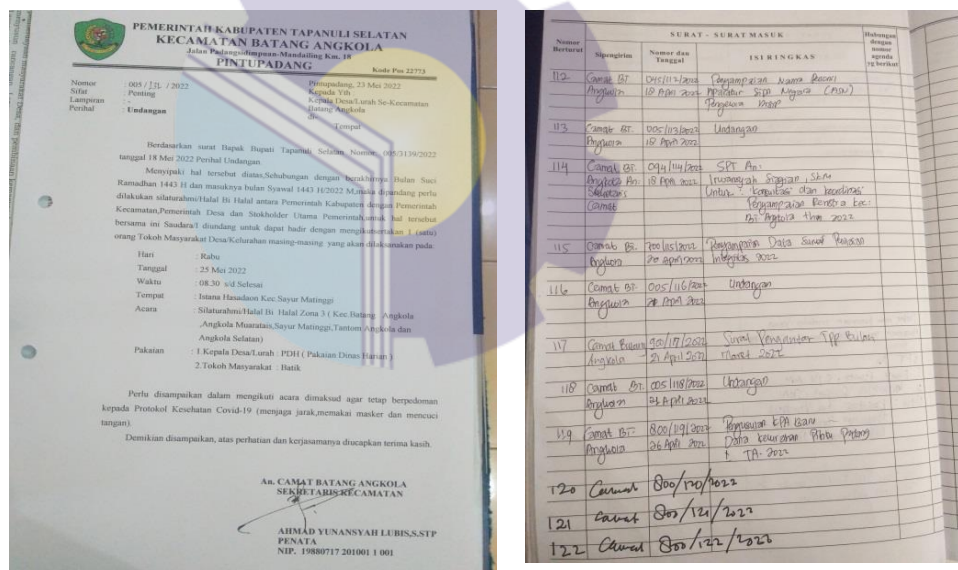 PEMERINTAH KABUPATEN TAPANULI SELATAN
KECAMATAN BATANG ANGKOLA
Jalan Padangsidimpuan-Mandailing Km. 18
PINTUPADANG
Kode Pos 22773
Nomor : 005 / / 2022
Sifat : Penting
Lampiran : -
Perihal : Undangan
Pintupadang, 23 Mei 2022
Kepada Yth :
Kepala Desa/Lurah Se-Kecamatan
Batang Angkola
di-
Tempat
Berdasarkan surat Bapak Bupati Tapanuli Selatan Nomor 005/3139/2022
tanggal 18 Mei 2022 Perihal Undangan.
Menyipaki hal tersebut diatas,Sehubungan dengan berakhirnya Bulan Suci
Ramadhan 1443 H dan masuknya bulan Syawal 1443 H/2022 M,maka dipandang perlu
dilakukan silaturahmi/Halal Bi Halal antara Pemerintah Kabupaten dengan Pemerintah
Kecamatan,Pemerintah Desa dan Stokholder Utama Pemerintah,untuk hal tersebut
bersama ini Saudara/I diundang untuk dapat hadir dengan mengikutsertakan 1 (satu)
orang Tokoh Masyarakat Desa/Kelurahan masing-masing yang akan dilaksanakan pada:
Hari : Rabu
Tanggal : 25 Mei 2022
Waktu : 08.30 s/d Selesai
Tempat : Istana Hasadaon Kec.Sayur Matinggi
Acara : Silaturahmi/Halal Bi Halal Zona 3 ( Kec.Batang Angkola
,Angkola Muaratais,Sayur Matinggi,Tantom Angkola dan
Angkola Selatan)
Pakaian : 1.Kepala Desa/Lurah : PDH ( Pakaian Dinas Harian )
2.Tokoh Masyarakat : Batik
Perlu disampaikan dalam mengikuti acara dimaksud agar tetap berpedoman
kepada Protokol Kesehatan Covid-19 (menjaga jarak,memakai masker dan mencuci
tangan).
Demikian disampaikan, atas perhatian dan kerjasamanya diucapkan terima kasih.
An. CAMAT BATANG ANGKOLA
SEKRETARIS KECAMATAN
AHMAD YUNANSYAH LUBIS,S.STP
PENATA
NIP. 19880717 201001 1 001
Nomor Berurut
SURAT - SURAT MASUK
Hubungan dengan nomor agenda yg berikut
Sipengirim
Nomor dan Tanggal
ISI RINGKAS
112 Camat BT. 045/112/2022 Penyampaian Nama
Angkola 18 April 2022 Aparatur Sipil Negara (ASN)
113 Camat BT. 005/113/2022 Undangan
Angkola 18 April 2022
114 Camat BT. 094/114/2022 SPT An.
Angkola An. 18 April 2022 Irwansyah Siregar, SKM
Sekretaris Untuk dan koordinasi
Camat Penyampaian Renstra Kec.
Bt. Angkola thn 2022
115 Camat BT. 700/115/2022 Penyampaian Data Survei Penilaian
Angkola 20 April 2022 Integritas 2022
116 Camat BT. 005/116/2022 Undangan
Angkola April 2022
117 Camat Batang 900/117/2022 Surat Pengantar TPP Bulan
Angkola 21 April 2022 Maret 2022
118 Camat BT. 005/118/2022 Undangan
Angkola April 2022
119 Camat BT. 800/119/2022 KPA
Angkola 26 April 2022 Dana Kelurahan Pintu Padang
TA. 2022
120 Camat 800/120/2022
121 Camat 800/121/2022
122 Camat 800/122/2022